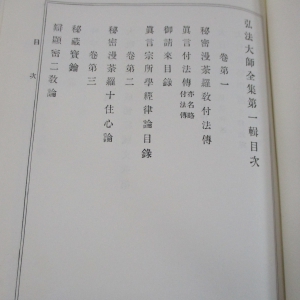 弘法大師全集第一輯目次
卷第一
秘密漫荼羅教付法傳
眞言付法傳 亦名略付法傳
御請來目錄
眞言宗所學經律論目錄
卷第二
秘密漫荼羅十住心論
卷第三
秘藏寶鑰
辯顯密二敎論
目次